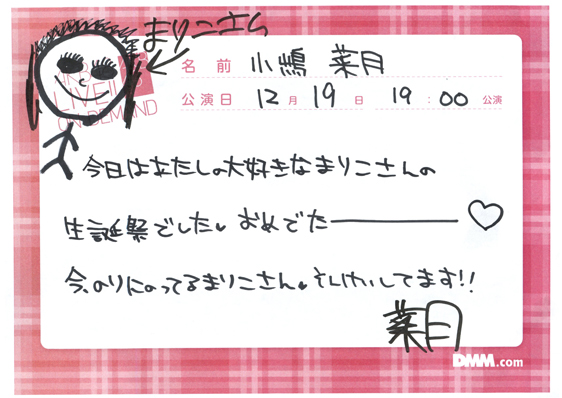 まりこさん
AKB48
LIVE!!
ON DEMAND
名前 小鷭 菜月
公演日 12月 19日 19:00 公演
今日はわたしの大好きなまりこさんの
生誕祭でした。おめでたー♡
今、のりにのってるまりこさん。そんけいしてます!!
菜月
DMM.com